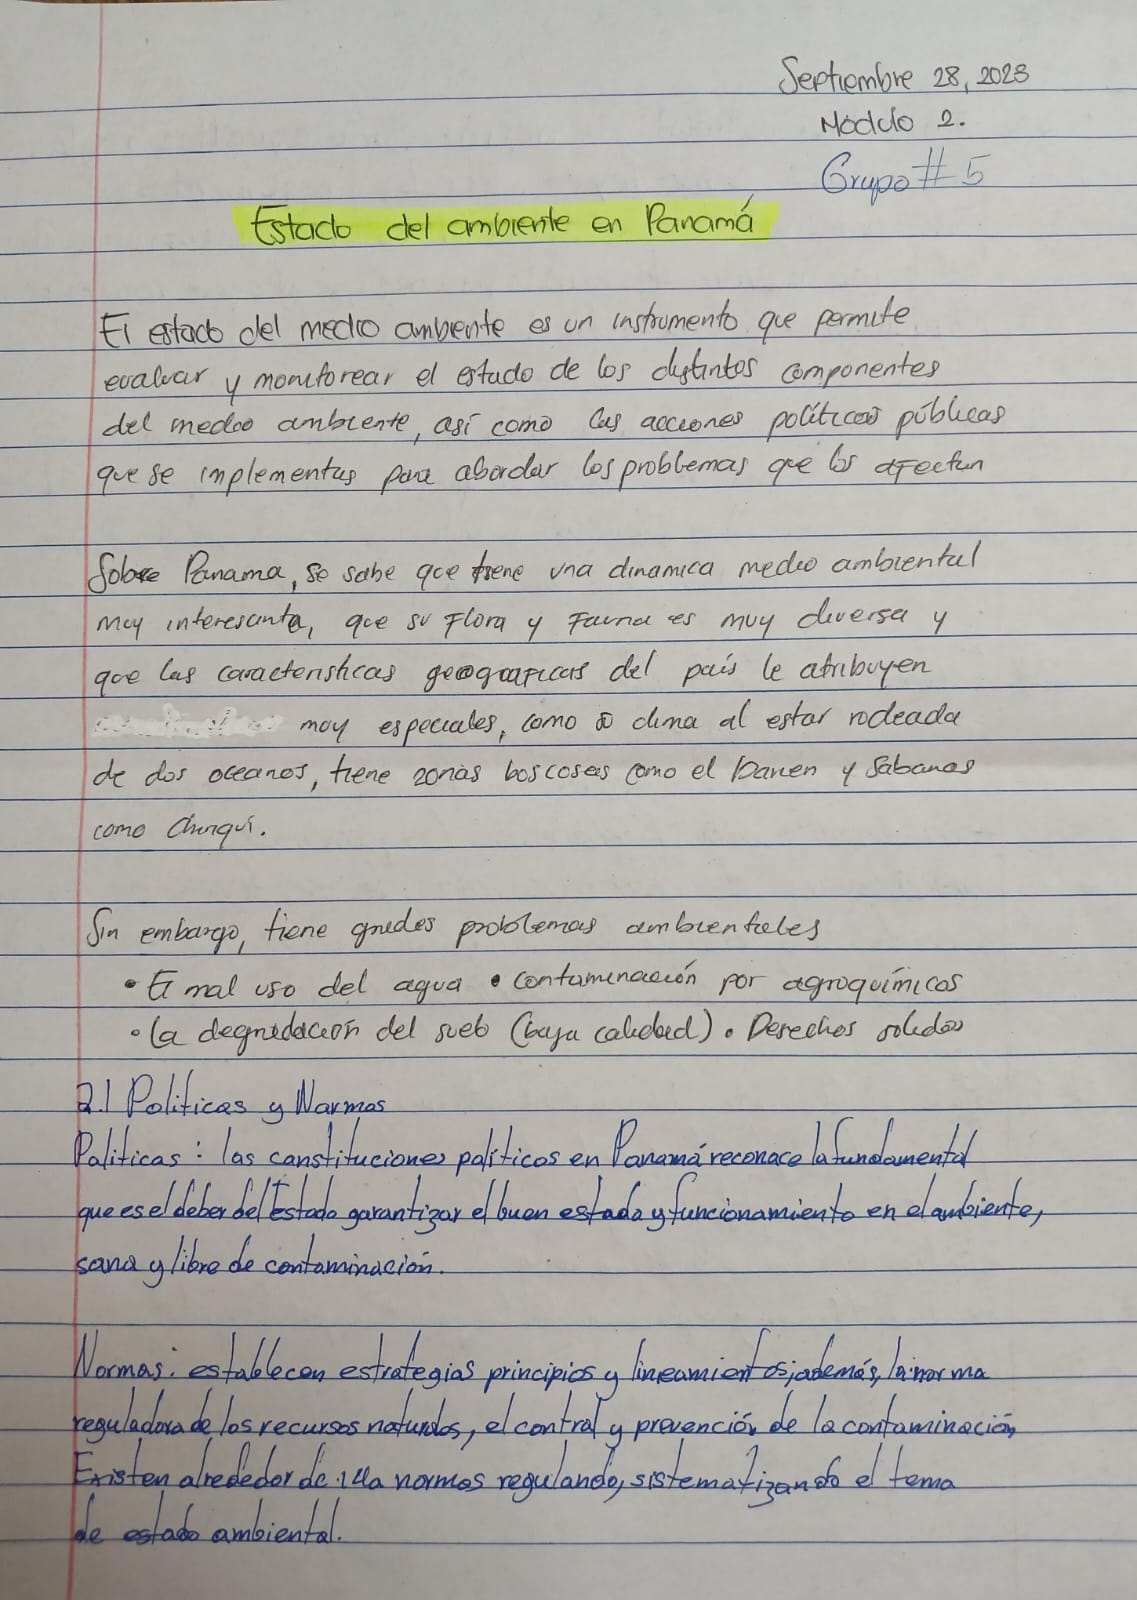 Septiembre 28, 2023
Módulo 2.
Grupo # 5
Estado del ambiente en Panamá
El estado del medio ambiente es un instrumento que permite
evaluar y monitorear el estado de los distintos componentes
del medio ambiente, así como las acciones políticas públicas
que se implementas para abordar los problemas que los afectan
Sobre Panama, se sabe que tiene una dinamica medio ambiental
muy interesante, que su Flora y Fauna es muy diversa y
que las caracteristicas geograficas del país le atribuyen
muy especiales, como clima al estar rodeada
de dos oceanos, tiene zonas boscosas como el Darien y Sabanas
como Chiriquí.
Sin embargo, tiene grades problemas ambientales
• El mal uso del agua • contaminación por agroquímicos
• La degradación del suelo (baja calidad) • Desechos solidos
2.1 Politicas y Normas
Politicas: las constituciones políticos en Panamá reconoce la fundamental
que es el deber del Estado garantizar el buen estado y funcionamiento en el ambiente,
sana y libre de contaminación.
Normas: establecen estrategias principios y lineamientos; además, la norma
reguladora de los recursos naturales, el control y prevención de la contaminación
Existen alrededor de normas regulando, sistematizando el tema
de estado ambiental.